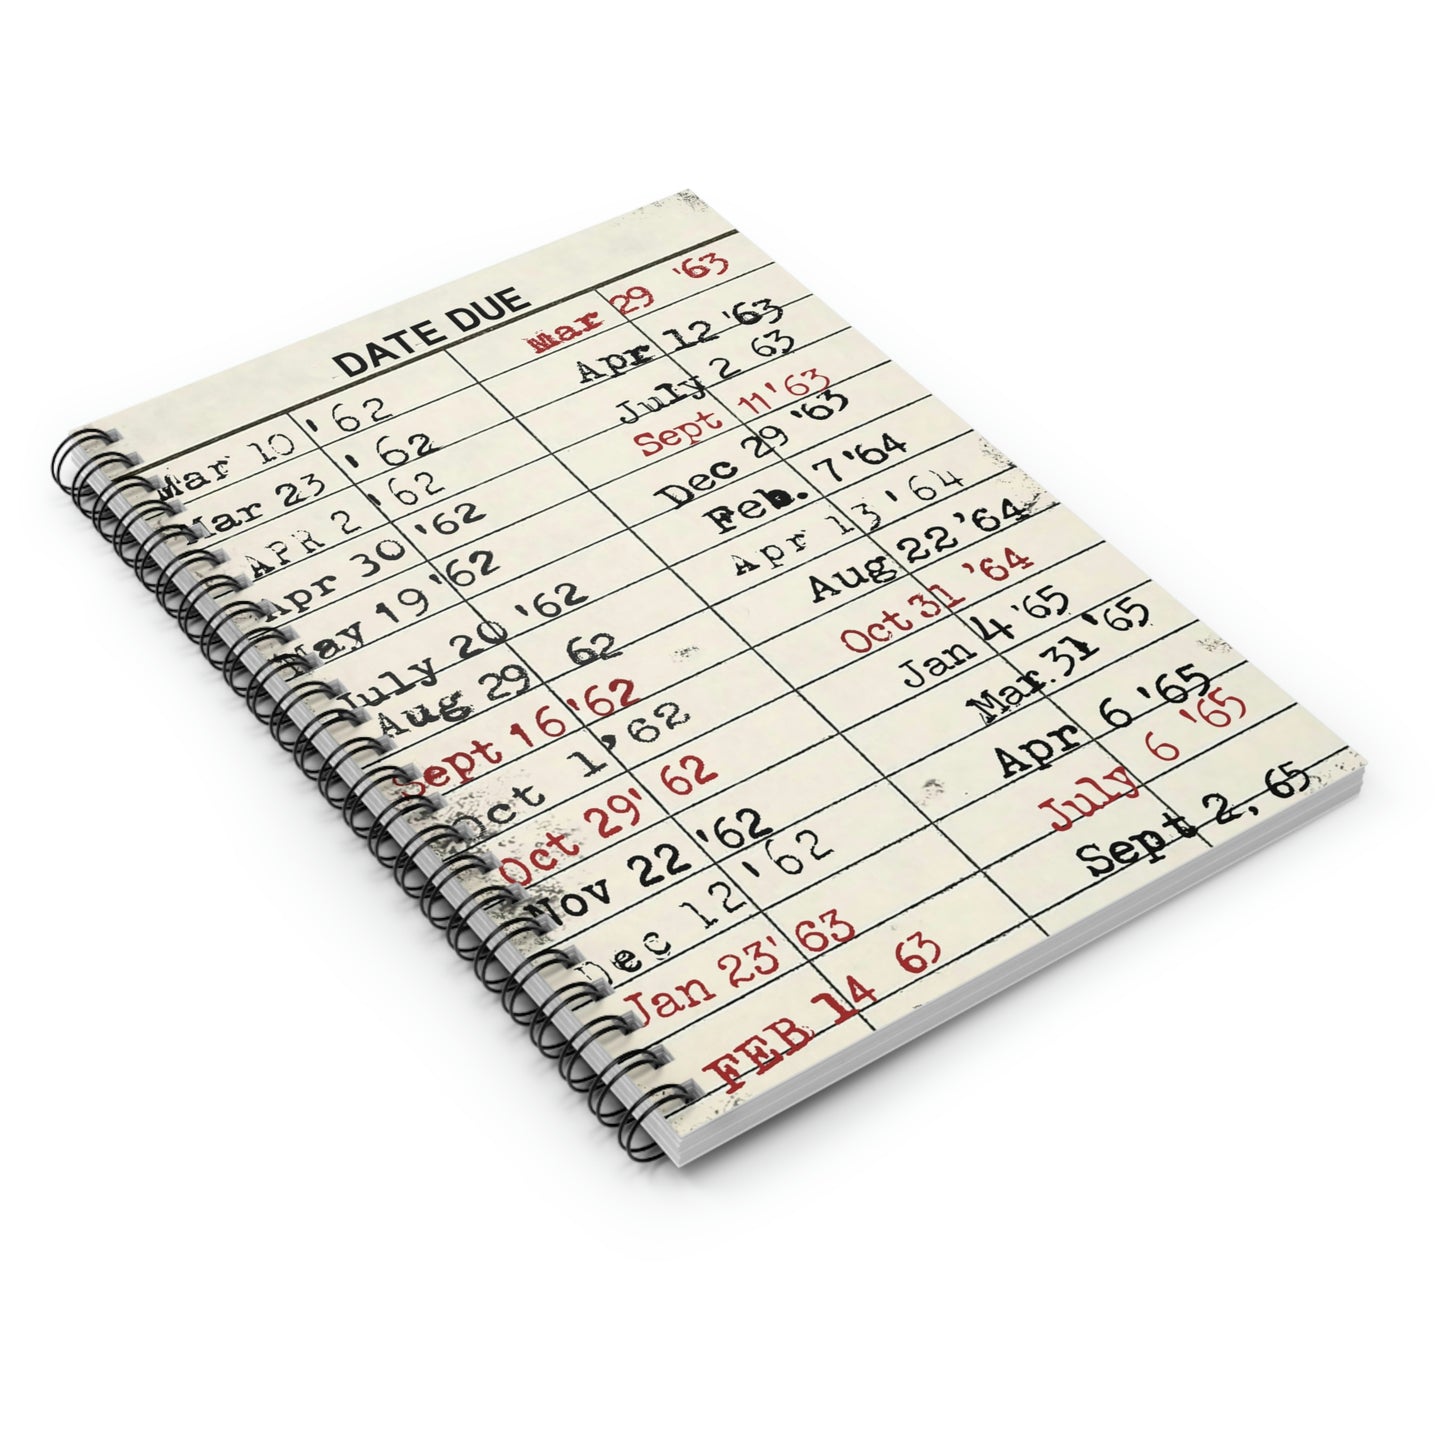 DATE DUE
Mar 10 '62
Mar 23 '62
APR 2 '62
Apr 30 '62
May 19 '62
July 20 '62
Aug 29 62
Sept 16 '62
Oct 1, '62
Oct 29' 62
Nov 22 '62
Dec 12 '62
Jan 23' 63
FEB 14 63
Mar 29 '63
Apr 12 '63
July 2 63
Sept 11 '63
Dec 29 '63
Feb. 7 '64
Apr 13 '64
Aug 22 '64
Oct 31 '64
Jan 4 '65
Mar. 31 '65
Apr 6 '65
July 6 '65
Sept 2, 65